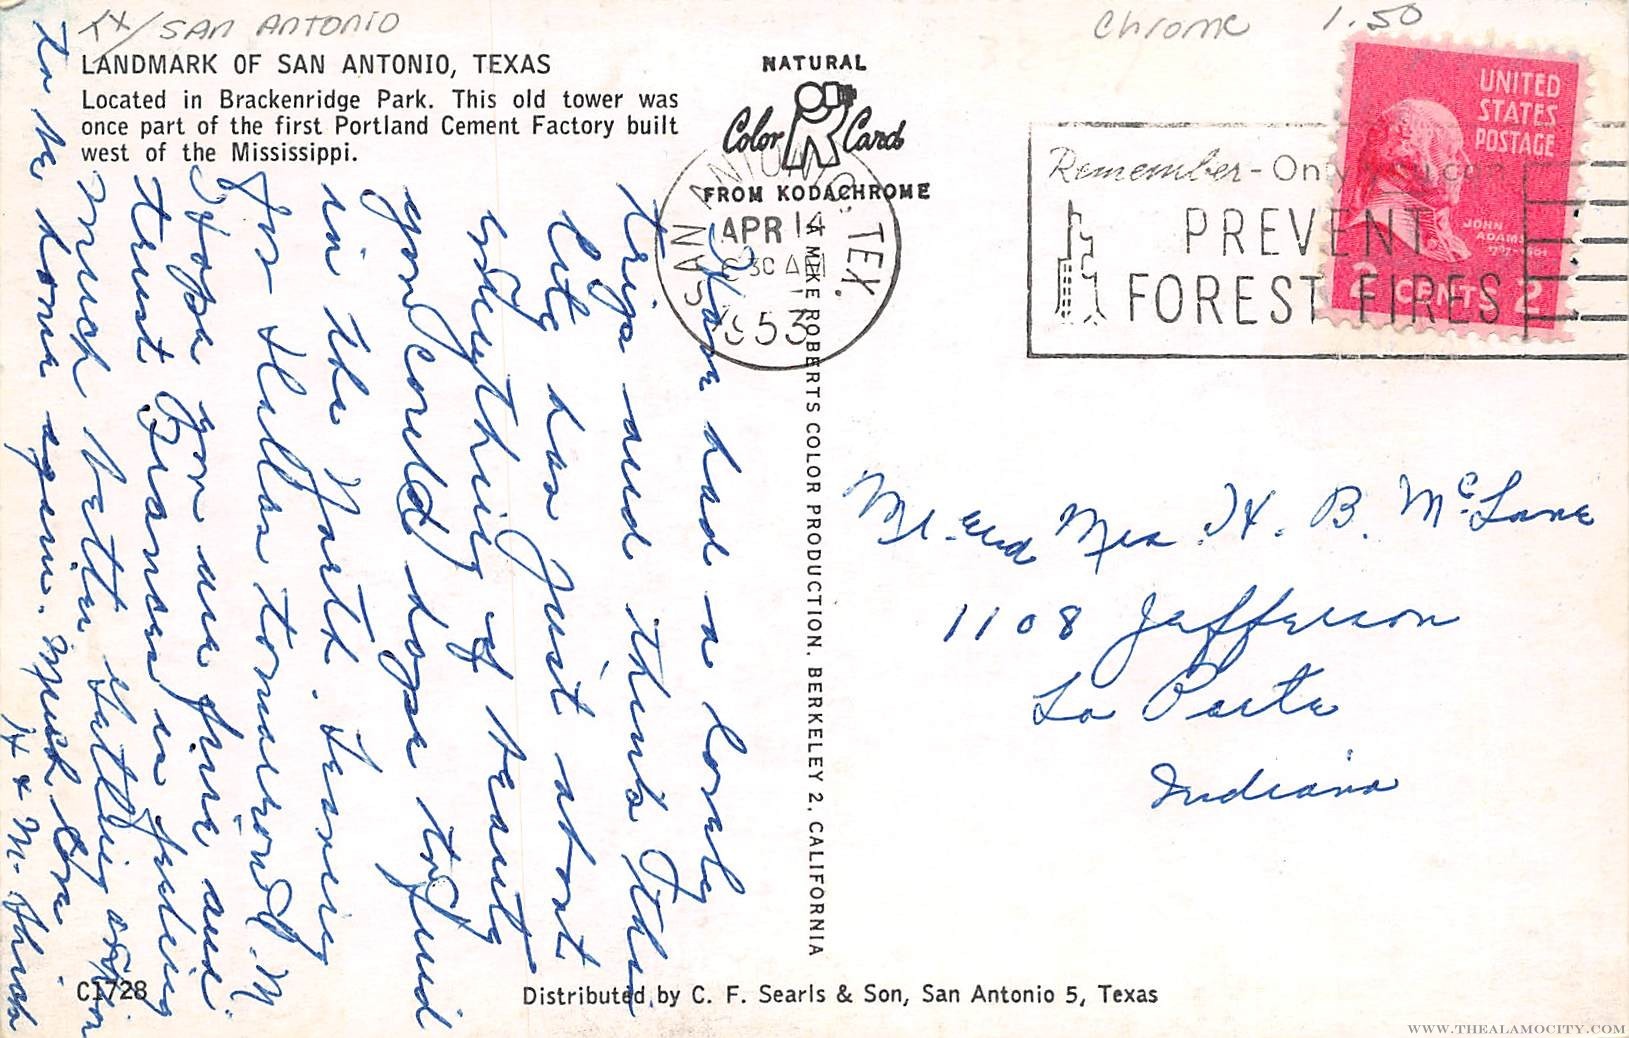 TX/SAN ANTONIO
Chrome 1.50
LANDMARK OF SAN ANTONIO, TEXAS
Located in Brackenridge Park. This old tower was
once part of the first Portland Cement Factory built
west of the Mississippi.
NATURAL
Color Card
FROM KODACHROME
SAN ANTONIO, TEX.
APR 14
30 AM
1953
Remember - Only you can
PREVENT
FOREST FIRES
UNITED
STATES
POSTAGE
JOHN
ADAMS
2 CENTS 2
Have had a lovely
trip and think this
city has just about
everything of beauty
you could hope to find
in the North. Leaving
for Dallas tomorrow P.M
Hope you are fine and
trust Frances is feeling
much better. Getting anxious
to be home again. Much love
H & M.
A MIKE ROBERTS COLOR PRODUCTION, BERKELEY 2, CALIFORNIA
Mr. and Mrs. H. B. McLane
1108 Jefferson
La Porte
Indiana
C1728
Distributed by C. F. Searls & Son, San Antonio 5, Texas
WWW.THEALAMOCITY.COM